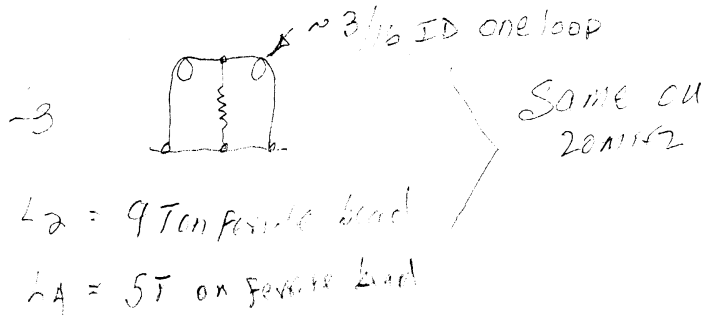 ~ 3/16 ID one loop
Same
-3
L2 = 9T on ferrite bead
L4 = 5T on ferrite bead